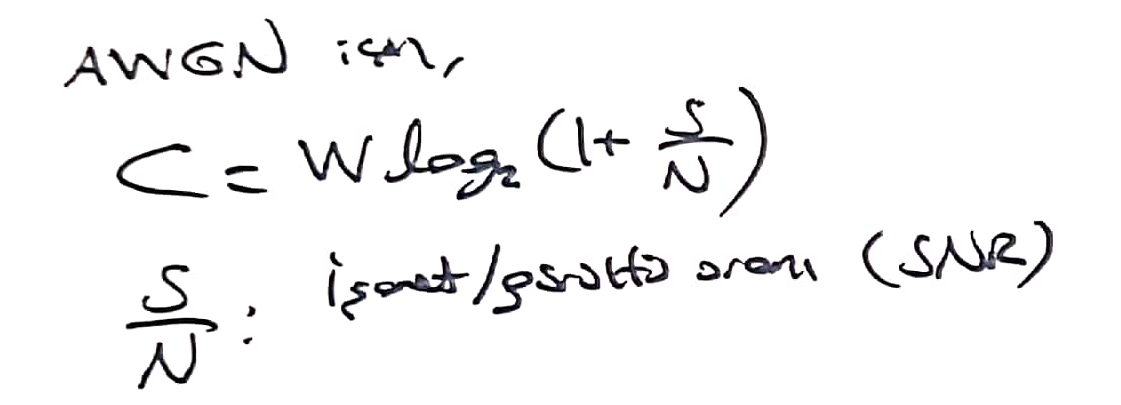 AWGN için,
C = W log₂ (1 + S/N)
S/N : işaret/gürültü oranı (SNR)